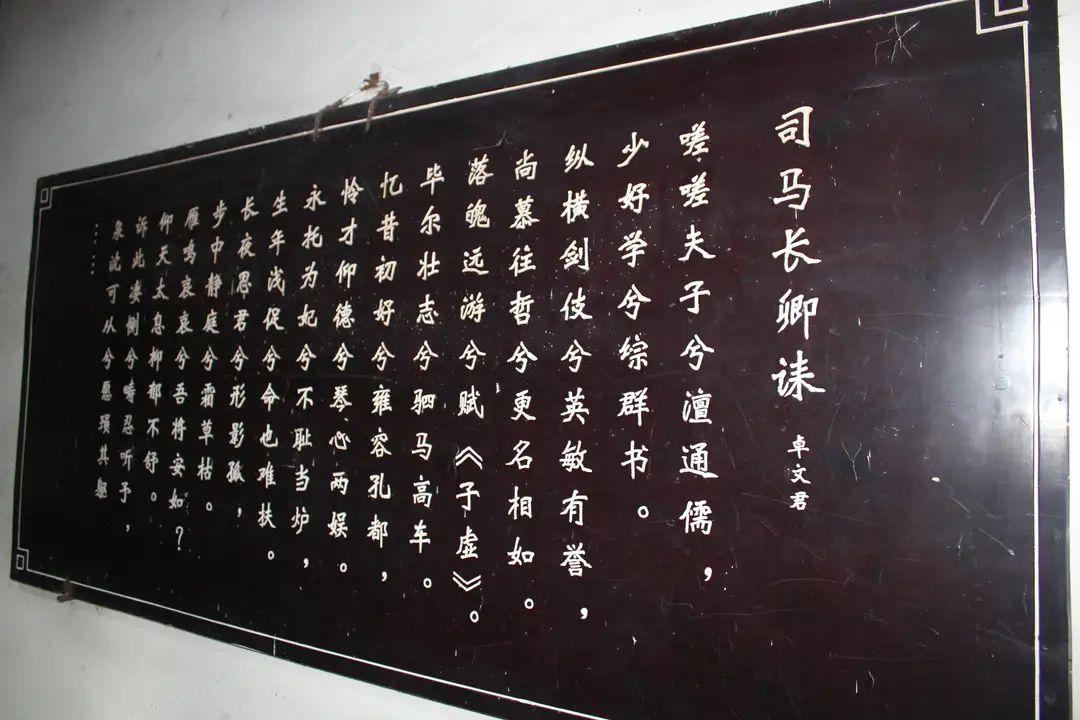 司马长卿诔 卓文君
嗟嗟夫子兮亶通儒，
少好学兮综群书。
纵横剑伎兮英敏有誉，
尚慕往哲兮更名相如。
落魄远游兮赋《子虚》。
毕尔壮志兮驷马高车。
忆昔初好兮雍容孔都，
怜才仰德兮琴心两娱。
永托为妃兮不耻当炉，
生年浅促兮命也难扶。
长夜思君兮形影孤，
步中静庭兮霜草枯。
雁鸣哀哀兮吾将安如？
仰天太息抑郁不舒。
诉此凄恻兮畴忍听予，
泉沈可从兮愿殒其躯
……